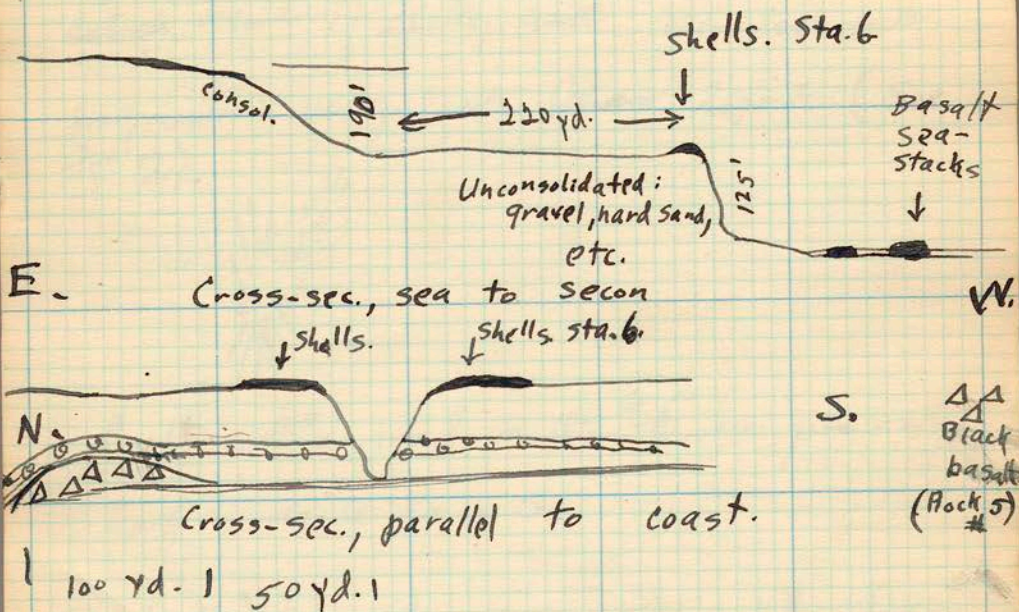 shells. Sta. 6
consol.
190'
220 yd.
Basalt
sea-
stacks
125'
Unconsolidated:
gravel, hard sand,
etc.
E.
Cross-sec., sea to secon
W.
shells.
shells sta. 6.
N.
S.
Black
basalt
(Rock 5)
#
Cross-sec., parallel to coast.
100 yd. 50 yd.